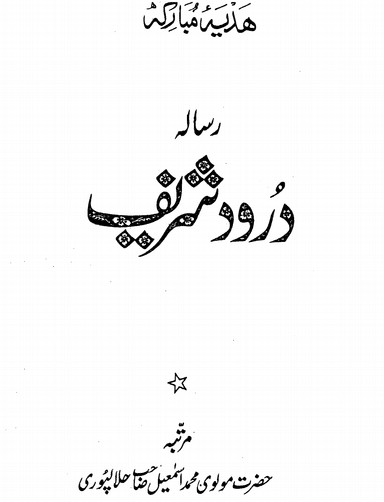 ھدیۂ مُبارکہ
رسالہ
دُرود شریف
مرتّبہ
حضرت مولوی محمد اسمٰعیل صاحب حلالپوری